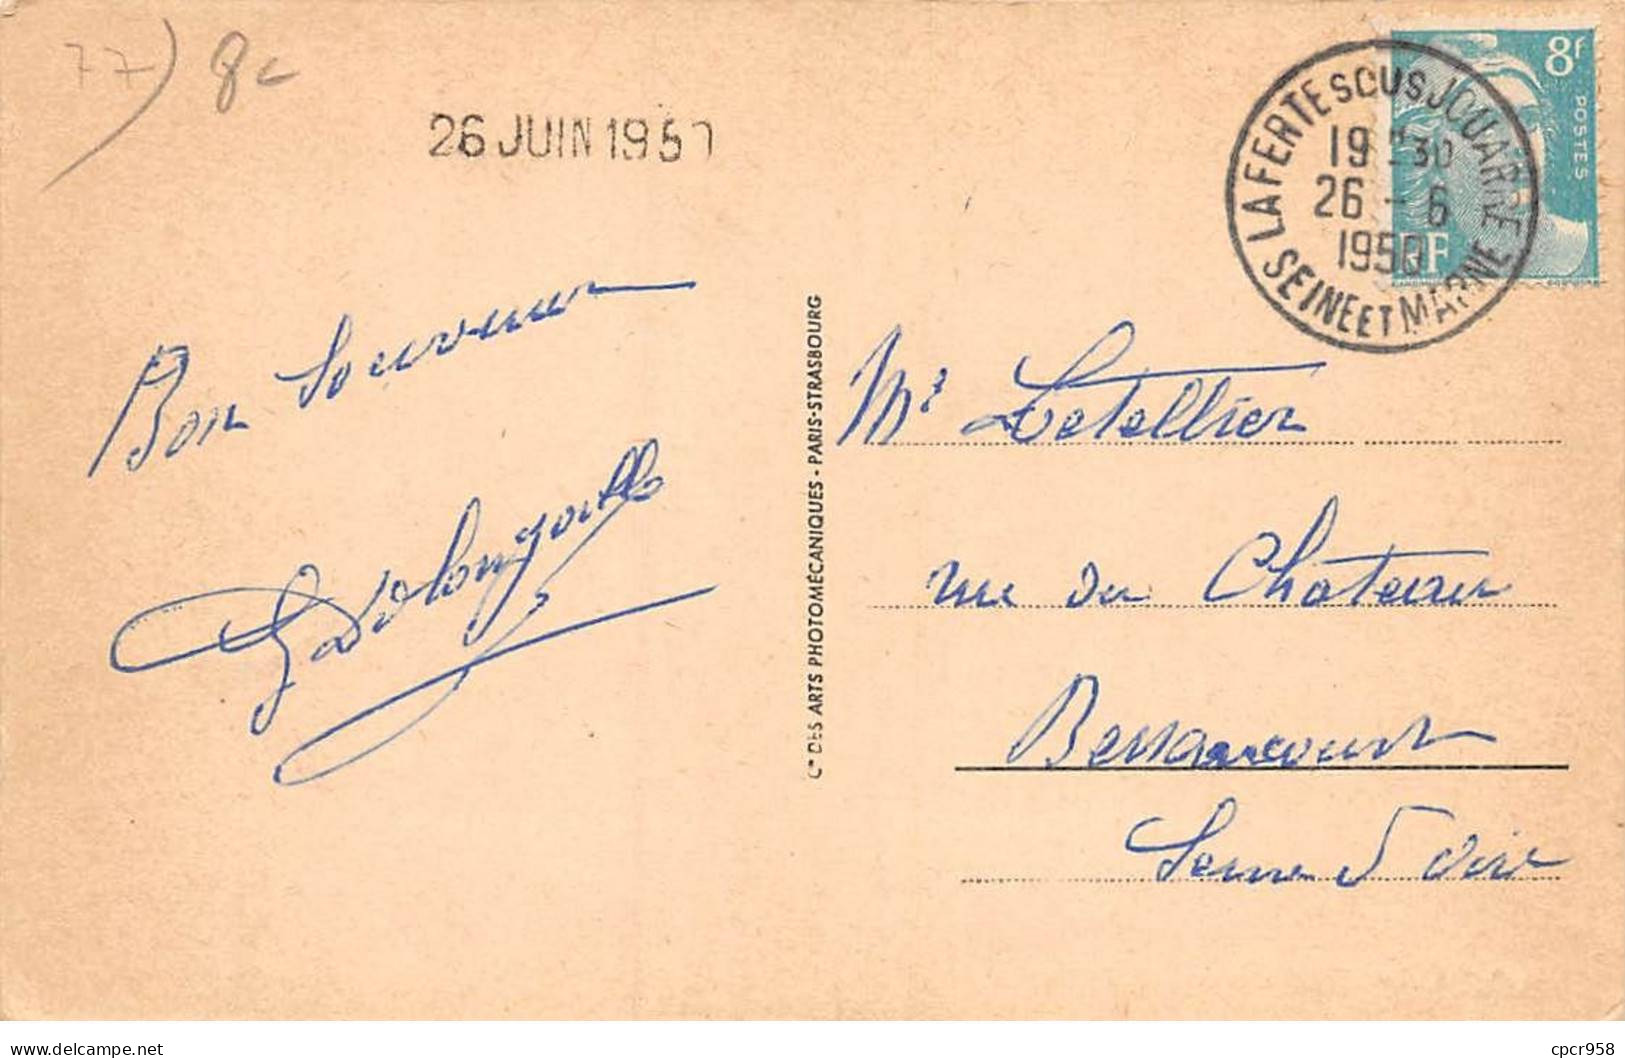 77) 8c
26 JUIN 1950
8f
POSTES
RF
LA FERTE SOUS JOUARRE
19 H 30
26 - 6
1950
SEINE ET MARNE
Bon Souvenir
Cie DES ARTS PHOTOMÉCANIQUES - PARIS-STRASBOURG
Mr Letellier
rue du Chateau
Bessancourt
Seine & Oise
delcampe.net
cpcr958